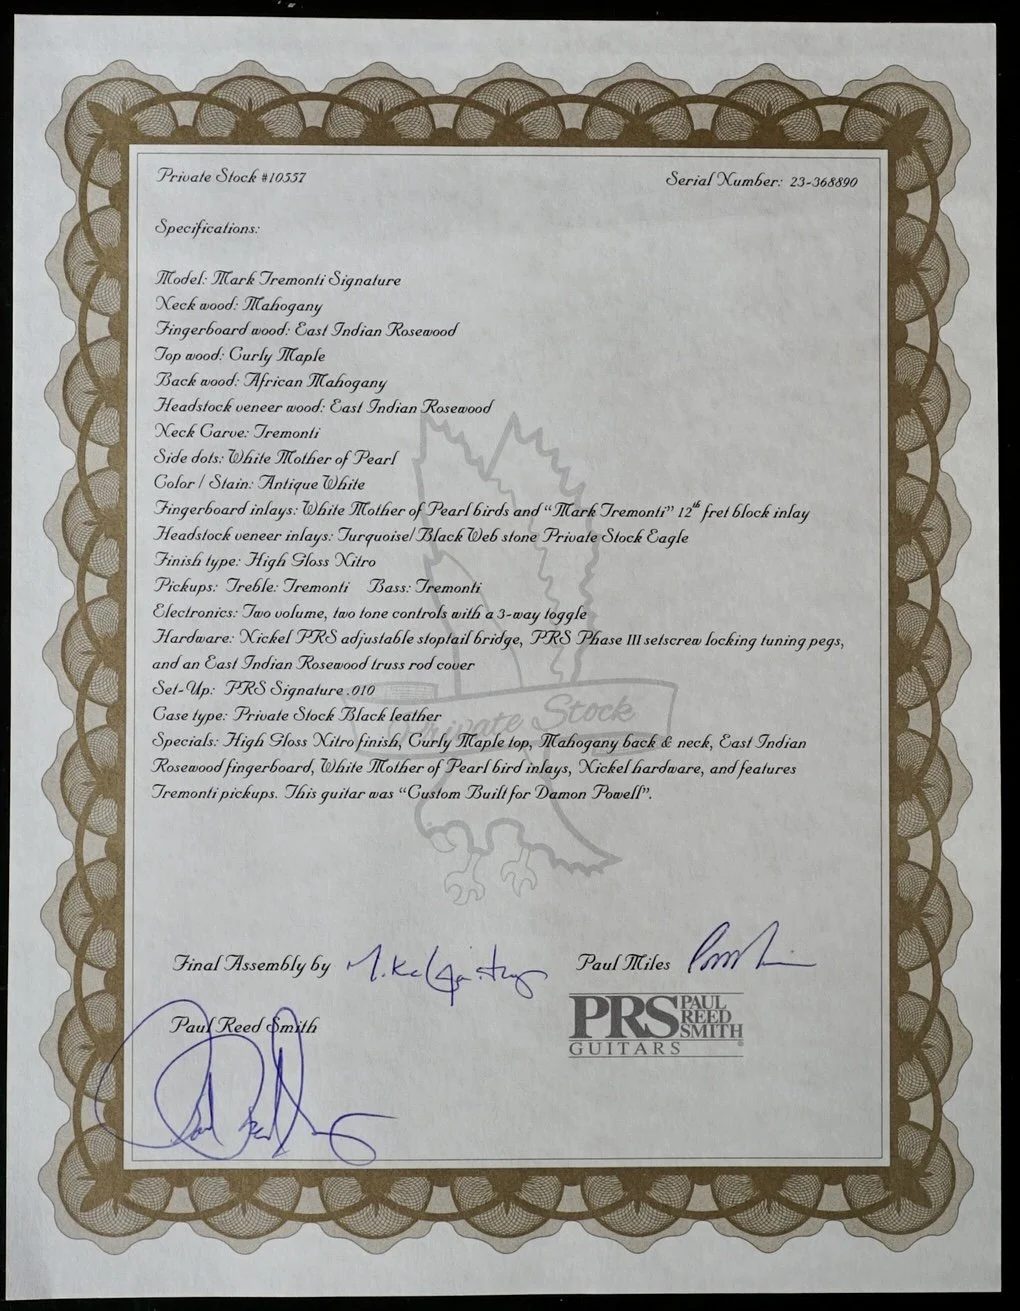 Private Stock #10557
Serial Number: 23-368890
Specifications:
Model: Mark Tremonti Signature
Neck wood: Mahogany
Fingerboard wood: East Indian Rosewood
Top wood: Curly Maple
Back wood: African Mahogany
Headstock veneer wood: East Indian Rosewood
Neck Carve: Tremonti
Side dots: White Mother of Pearl
Color / Stain: Antique White
Fingerboard inlays: White Mother of Pearl birds and “Mark Tremonti” 12th fret block inlay
Headstock veneer inlays: Turquoise/Black Web stone Private Stock Eagle
Finish type: High Gloss Nitro
Pickups: Treble: Tremonti Bass: Tremonti
Electronics: Two volume, two tone controls with a 3-way toggle
Hardware: Nickel PRS adjustable stoptail bridge, PRS Phase III setscrew locking tuning pegs,
and an East Indian Rosewood truss rod cover
Set-Up: PRS Signature .010
Case type: Private Stock Black leather
Private Stock
Specials: High Gloss Nitro finish, Curly Maple top, Mahogany back & neck, East Indian
Rosewood fingerboard, White Mother of Pearl bird inlays, Nickel hardware, and features
Tremonti pickups. This guitar was “Custom Built for Damon Powell”.
Final Assembly by
Paul Miles
Paul Reed Smith
PRS PAUL REED SMITH
GUITARS